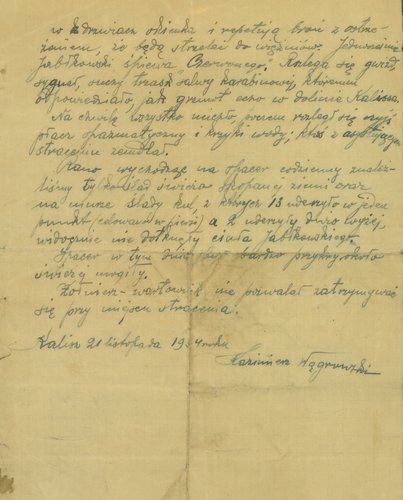 w drzwiach okienka i repetują broń z ostrze-
żeniem, że będą strzelać do więźniów. Jednocześnie
Jabłkowski śpiewa „Czerwonego". Rozlega się gwizd,
sygnał, suchy trzask salwy karabinowej, któremu
odpowiedziało, jak grzmot echo w dolinie Kalisza.
Na chwilę wszystko ucichło, poczem rozległ się czyjś
płacz spazmatyczny i krzyki wody; ktoś z asystujących
straceniu zemdlał.
Rano wychodząc na spacer codzienny znaleź-
liśmy tylko ślad świeżo skopanej ziemi oraz
na murze ślady kul, z których 13 uderzyło w jeden
punkt (celowano w pierś) a 2 uderzyły dużo wyżej,
widocznie nie dotknęły ciała Jabłkowskiego.
Spacer w tym dniu był bardzo przykry, około
świeżej mogiły.
Żołnierz-wartownik nie pozwalał zatrzymywać
się przy miejscu stracenia.
Kalisz 21 listopada 1934 roku
Kazimierz Wągrowski